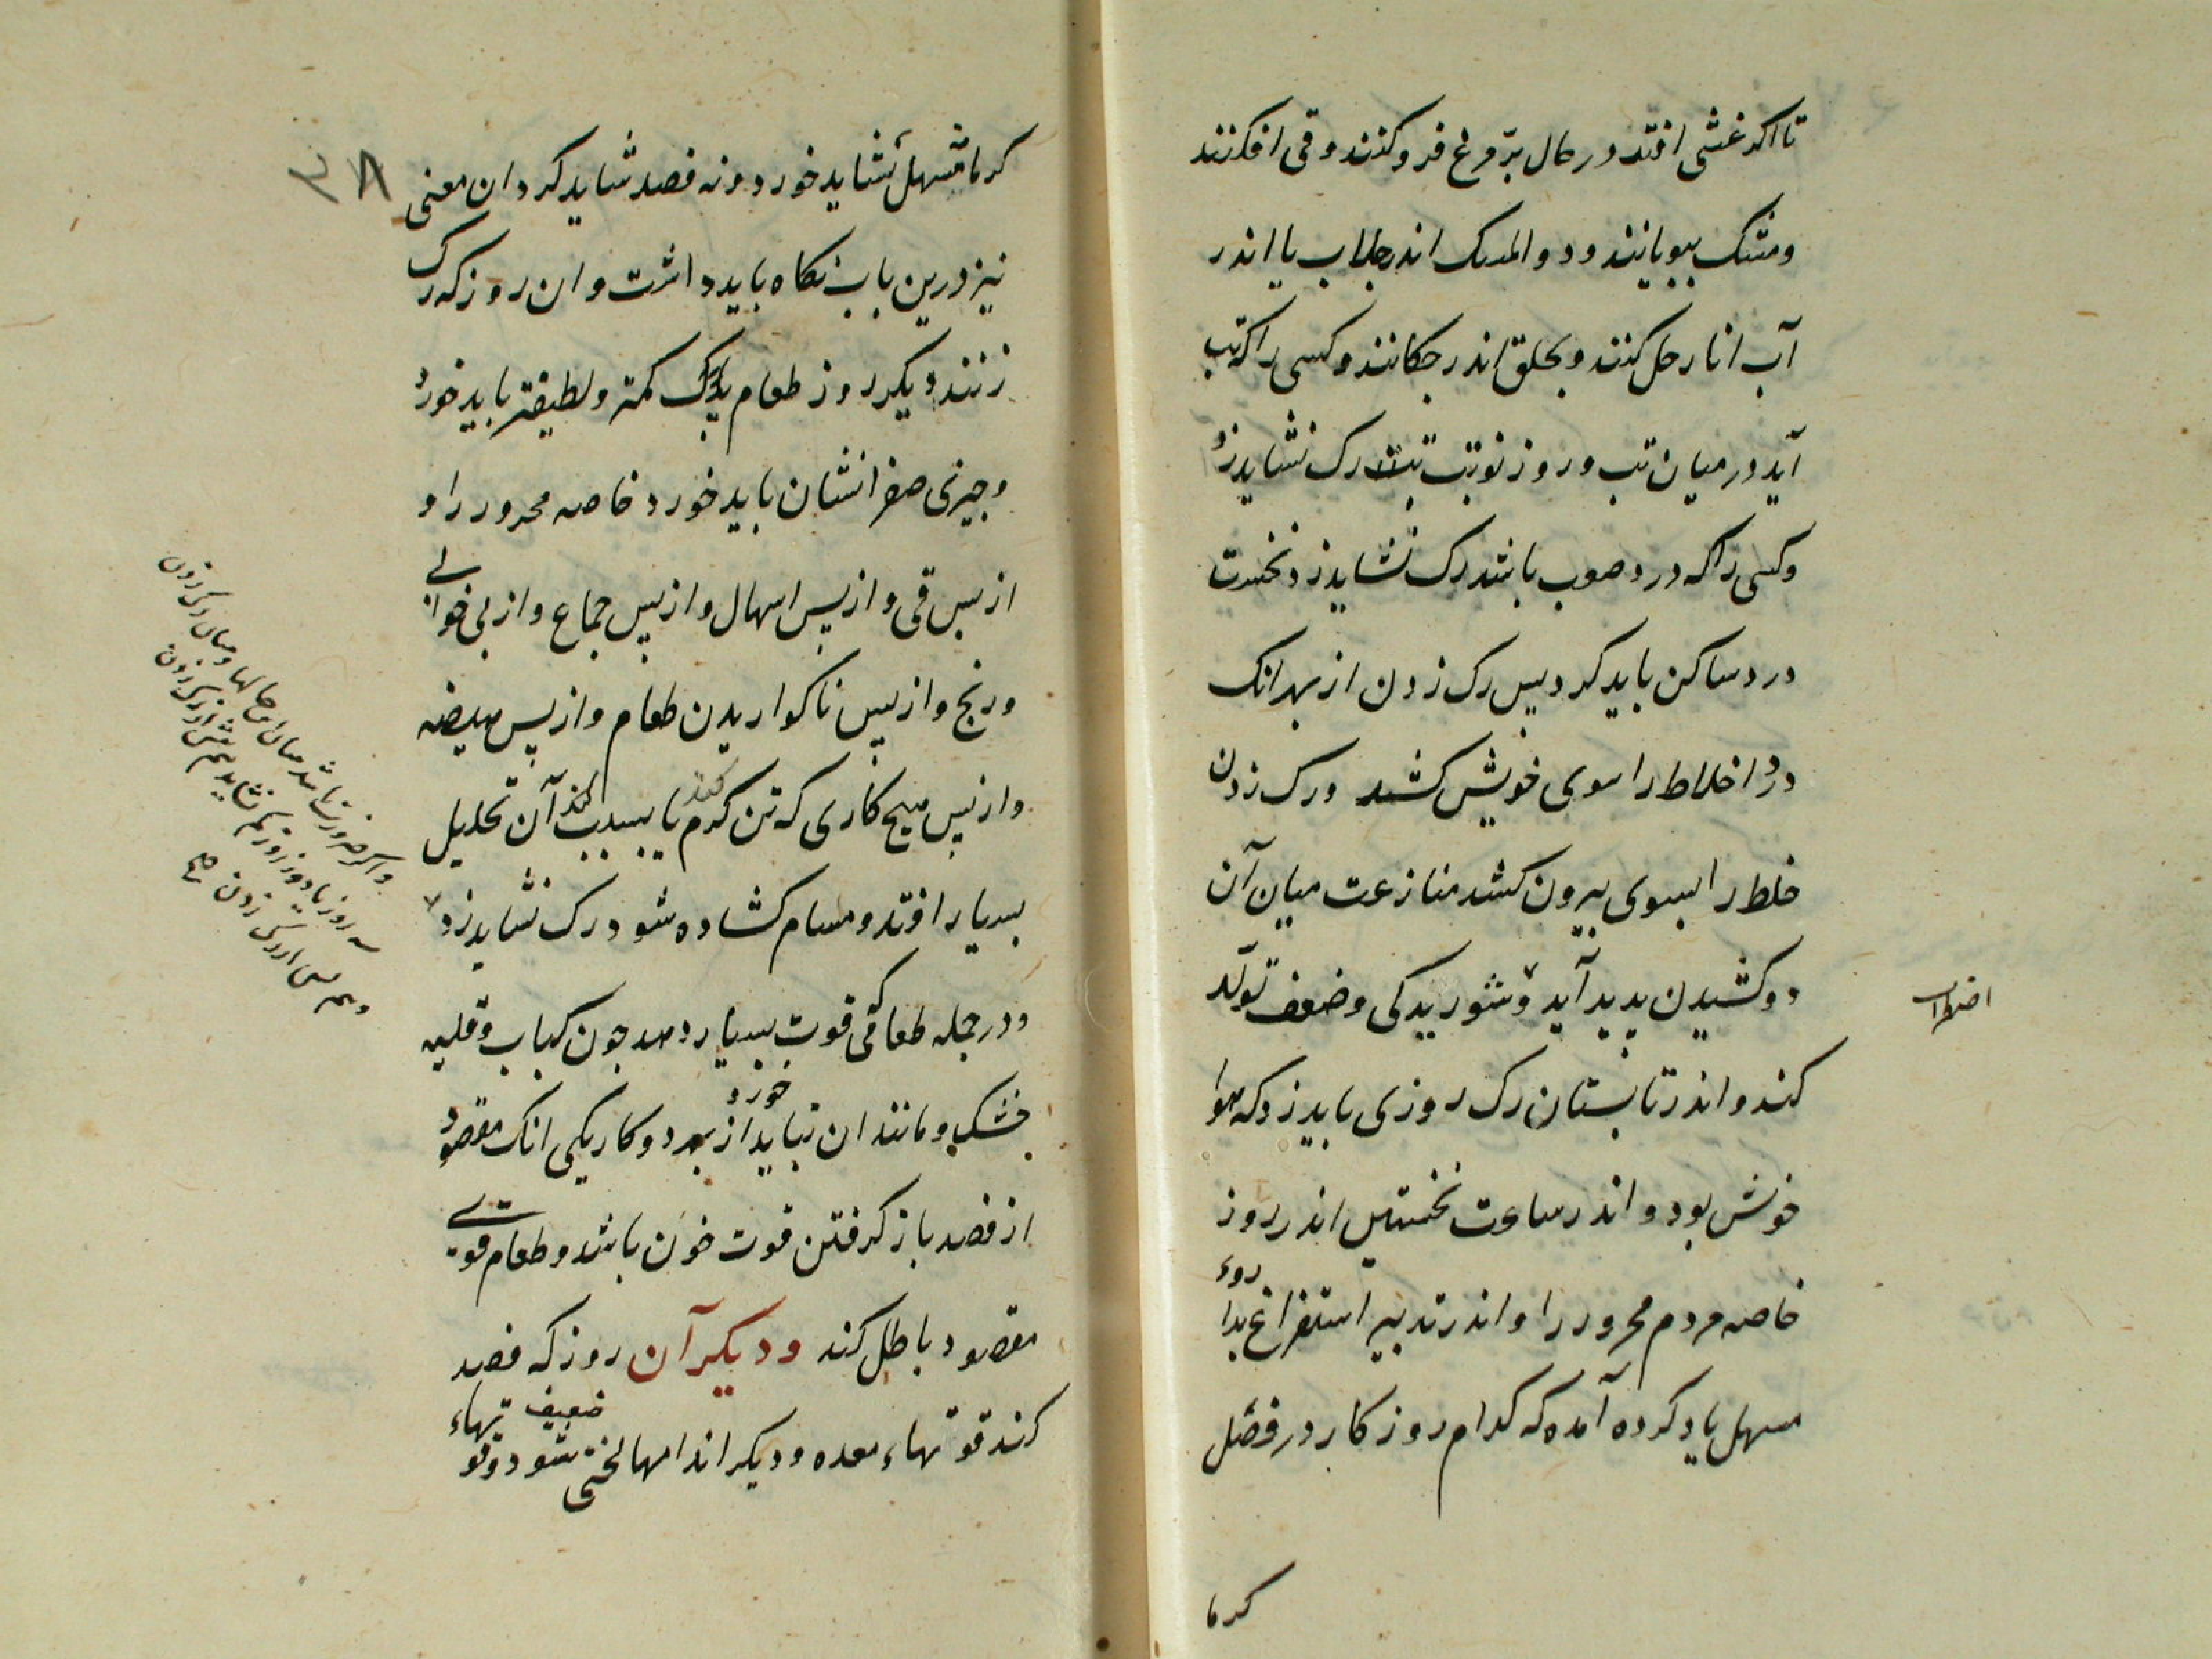 تا اکر غشی افتد در حال پر مرغ فرو کنند و قی افکنند
و مشک ببویانند و دوالمسک اندر جلاب یا اندر
آب انار حل کنند و بحلق اندر جکانند و کسی را که تب
آید در میان تب و روز نوبت تب رک نشاید زد
و کسی را که درد صعب باشد رک نشاید زد نخست
درد ساکن باید کرد پس رک زدن از بهر انک
درد اخلاط را سوی خویش کشد و رک زدن
خلط را بسوی بیرون کشد منازعت میان آن
دو کشیدن پدید آید و شوریدکی و ضعف تولد
اضطراب
کند و اندر تابستان رک روزی باید زد که هوا
خوش بود و اندر ساعت نخستین اندر روز
خاصه مردم محرور را و اندر تدبیر استفراغ بداروء
مسهل یاد کرده آمده که کدام روز کار در فصل
کرما
۳۸
کرما مسهل نشاید خورد و نه فصد شاید کرد ان معنی
نیز درین باب نکاه باید داشت و ان روز که رک
زنند دیکر روز طعام کمتر و لطیفتر باید خورد
و جیزی صفرا نشان باید خورد خاصه محرور را و
از پس قی و از پس اسهال و از پس جماع و از بی خوابی
و رنج و از پس ناکواریدن طعام و از پس هیضه
و از پس هیج کاری که تن کرم کند یا بسبب آن تحلیل
بسیار افتد و مسام کشاده شود رک نشاید زد
و در جمله طعامی که قوت بسیار دهد جون کباب و قلیه
خشک و مانند ان نباید خورد از بهر دو کار یکی انک مقصود
از فصد باز کرفتن قوت خون باشد و طعام قوی
مقصود باطل کند و دیکر آن روز که فصد
کند قوتهاء معده و دیکر اندامها لختی ضعیف شود و قوتهاء
و اکر ضرورت باشد میان این حالها و میان رک زدن
سه روز یا دو روز